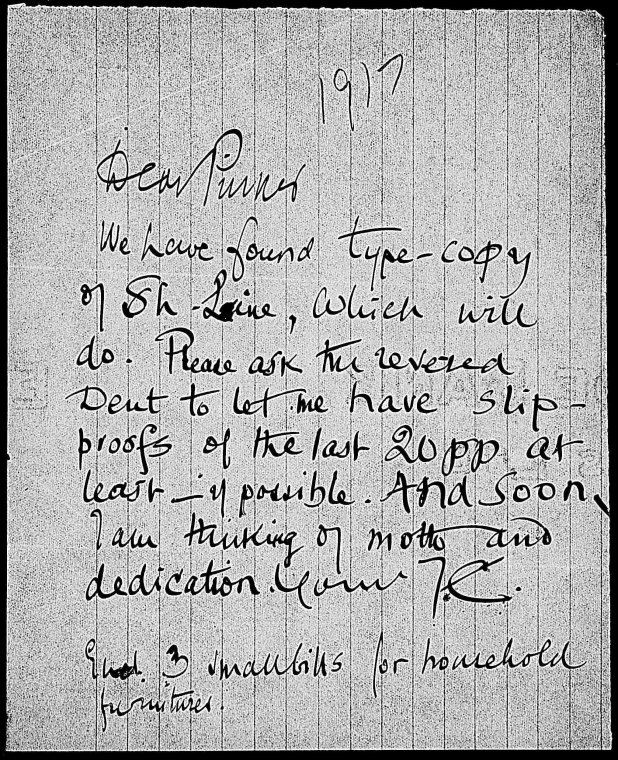 1917
Dear Pinker
We have found type-copy
of Sh-Line, which will
do. Please ask the revered
Dent to let me have slip-
proofs of the last 20 pp at
least – if possible. And soon.
I am thinking of motto and
dedication. Yours J.C.
Encl. 3 small bills for household
furnitures.